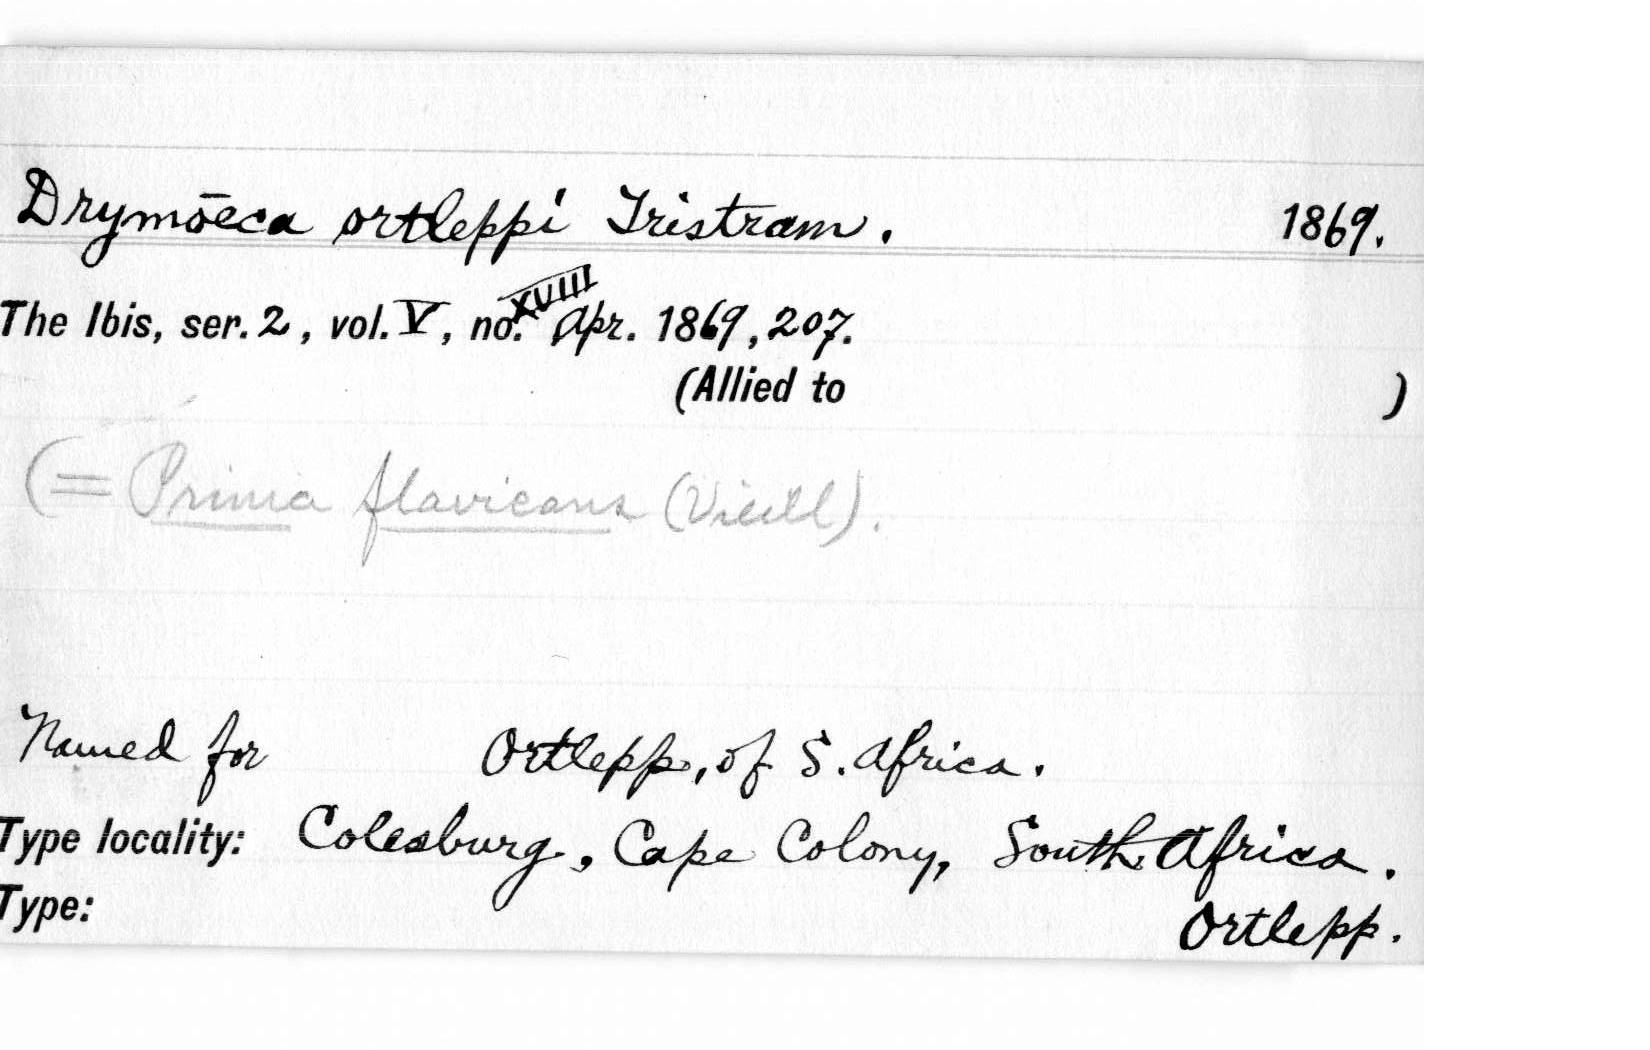 Drymōeca ortleppi Tristram. 1869.
The Ibis, ser. 2, vol. V, no. XVIII Apr. 1869, 207.
(Allied to )
(= Prinia flavicans (Vieill).
Named for Ortlepp, of S. Africa.
Type locality: Colesburg, Cape Colony, South Africa.
Type: Ortlepp.